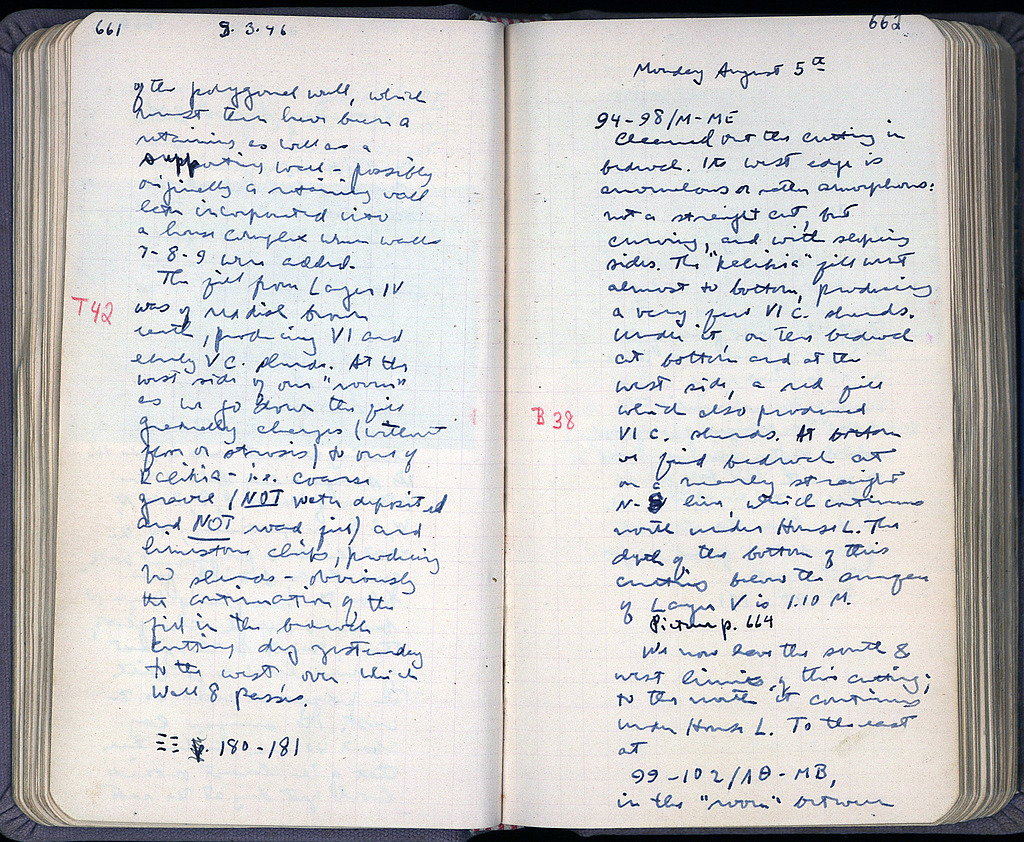 661
3.46
of the polygonal wall, which
must then have been a
retaining as well as a
supporting wall - possibly
originally a retaining wall
later incorporated into
a house complex when walls
7-8-9 were added.
The fill from Layer IV
T42
was of reddish brown
earth, producing VI and
early V C. sherds. At the
west side of our "room"
as we go down the fill
gradually changes (without
floor or strosis) to one of
kelikia - i.e. coarse
gravel (NOT water deposited
and NOT road fill) and
limestone chips, producing
sherds - obviously
the continuation of the
fill in the bedrock
cutting dug yesterday
to the west over which
Wall 8 passes.
180-181
662
Monday August 5th
94-98/Μ-ΜΕ
Cleaned out the cutting in
bedrock. Its west edge is
anomalous or rather amorphous:
not a straight cut, but
curving, and with sloping
sides. The "kelikia" fill went
almost to bottom, producing
a very few VI C. sherds.
Under it, on the bedrock
at bottom and at the
west side, a red fill
B 38
which also produced
VI C. sherds. At bottom
we find bedrock cut
on a nearly straight
N-S line, which continues
north under House L. The
depth of the bottom of this
cutting below the surface
of Layer V is 1.10 M.
Picture p. 664
We now have the south &
west limits of this cutting;
to the north it continues
under House L. To the east
at
99-102/ΛΘ-ΜΒ,
in the "room" between